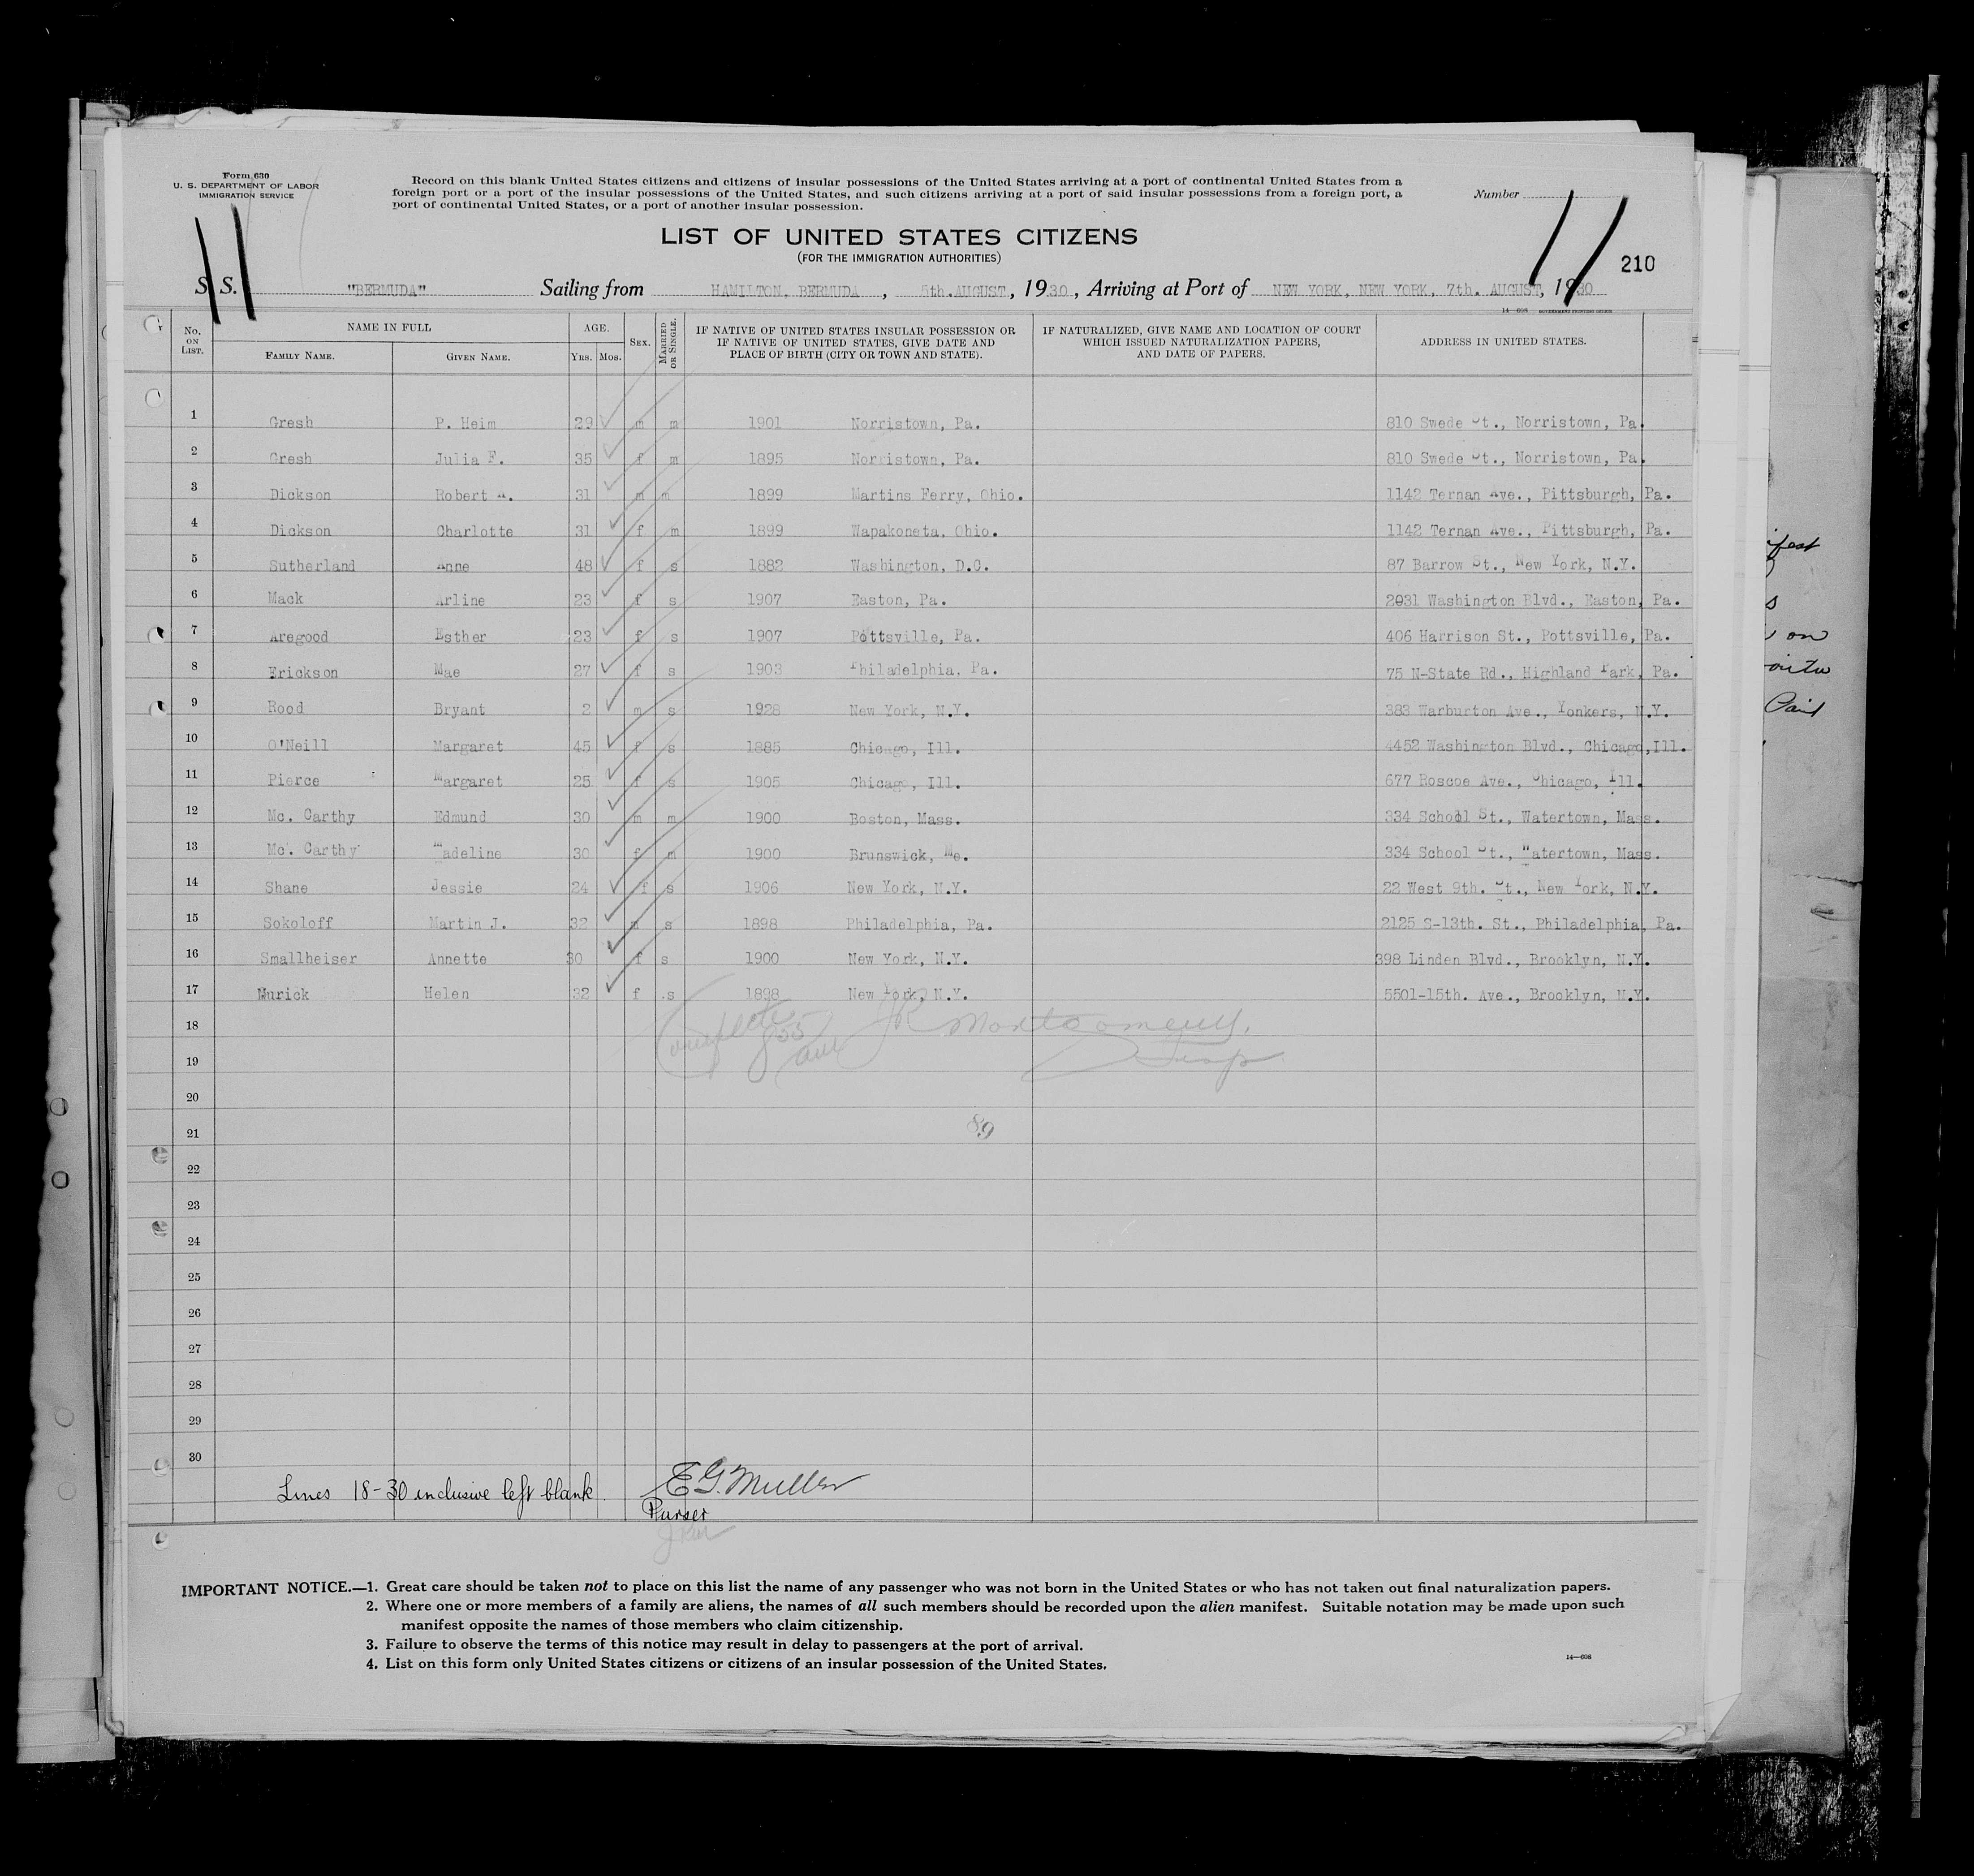 Form 630
U. S. DEPARTMENT OF LABOR
IMMIGRATION SERVICE
Record on this blank United States citizens and citizens of insular possessions of the United States arriving at a port of continental United States from a
foreign port or a port of the insular possessions of the United States, and such citizens arriving at a port of said insular possessions from a foreign port, a
port of continental United States, or a port of another insular possession.
Number
11 11
LIST OF UNITED STATES CITIZENS
(FOR THE IMMIGRATION AUTHORITIES)
210
S. S. "BERMUDA" Sailing from HAMILTON, BERMUDA, 5th. AUGUST, 1930, Arriving at Port of NEW YORK, NEW YORK, 7th. AUGUST, 1930
14—608 GOVERNMENT PRINTING OFFICE
No. ON LIST. NAME IN FULL FAMILY NAME. GIVEN NAME. AGE. YRS. MOS. SEX. MARRIED OR SINGLE. IF NATIVE OF UNITED STATES INSULAR POSSESSION OR IF NATIVE OF UNITED STATES, GIVE DATE AND PLACE OF BIRTH (CITY OR TOWN AND STATE). IF NATURALIZED, GIVE NAME AND LOCATION OF COURT WHICH ISSUED NATURALIZATION PAPERS, AND DATE OF PAPERS. ADDRESS IN UNITED STATES.
1 Gresh P. Heim 29 m m 1901 Norristown, Pa. 810 Swede St., Norristown, Pa.
2 Gresh Julia F. 35 f m 1895 Norristown, Pa. 810 Swede St., Norristown, Pa.
3 Dickson Robert A. 31 m m 1899 Martins Ferry, Ohio. 1142 Ternan Ave., Pittsburgh, Pa.
4 Dickson Charlotte 31 f m 1899 Wapakoneta, Ohio. 1142 Ternan Ave., Pittsburgh, Pa.
5 Sutherland Anne 48 f s 1882 Washington, D.C. 87 Barrow St., New York, N.Y.
6 Mack Arline 23 f s 1907 Easton, Pa. 2031 Washington Blvd., Easton, Pa.
7 Aregood Esther 23 f s 1907 Pottsville, Pa. 406 Harrison St., Pottsville, Pa.
8 Erickson Mae 27 f s 1903 Philadelphia, Pa. 75 N-State Rd., Highland Park, Pa.
9 Rood Bryant 2 m s 1928 New York, N.Y. 383 Warburton Ave., Yonkers, N.Y.
10 O'Neill Margaret 45 f s 1885 Chicago, Ill. 4452 Washington Blvd., Chicago, Ill.
11 Pierce Margaret 25 f s 1905 Chicago, Ill. 677 Roscoe Ave., Chicago, Ill.
12 Mc. Carthy Edmund 30 m m 1900 Boston, Mass. 334 School St., Watertown, Mass.
13 Mc. Carthy Madeline 30 f m 1900 Brunswick, Me. 334 School St., Watertown, Mass.
14 Shane Jessie 24 f s 1906 New York, N.Y. 22 West 9th. St., New York, N.Y.
15 Sokoloff Martin J. 32 m s 1898 Philadelphia, Pa. 2125 S-13th. St., Philadelphia, Pa.
16 Smallheiser Annette 30 f s 1900 New York, N.Y. 398 Linden Blvd., Brooklyn, N.Y.
17 Murick Helen 32 f s 1898 New York, N.Y. 5501-15th. Ave., Brooklyn, N.Y.
18
Complete 855 am JR Montgomery,
19
Insp
20
21
89
22
23
24
25
26
27
28
29
30
Lines 18-30 inclusive left blank. E G. Muller
Purser
IMPORTANT NOTICE.—1. Great care should be taken not to place on this list the name of any passenger who was not born in the United States or who has not taken out final naturalization papers.
2. Where one or more members of a family are aliens, the names of all such members should be recorded upon the alien manifest. Suitable notation may be made upon such
manifest opposite the names of those members who claim citizenship.
3. Failure to observe the terms of this notice may result in delay to passengers at the port of arrival.
4. List on this form only United States citizens or citizens of an insular possession of the United States.
14—608